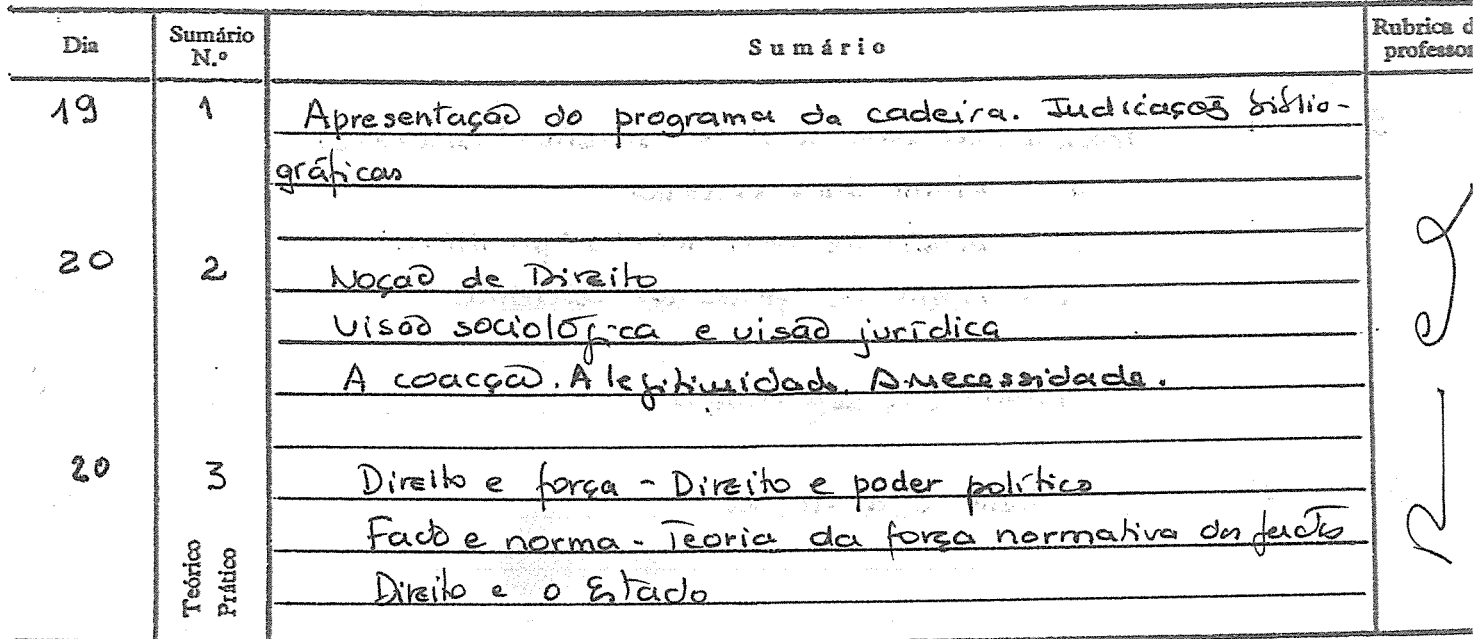 Dia Sumário N.º Sumário Rubrica d professor
19 1 Apresentação do programa da cadeira. Indicações biblio-
gráficas
20 2 Noção de Direito
Visão sociológica e visão jurídica
A coacção. A legitimidade. A necessidade.
20 3 Direito e força - Direito e poder político
Facto e norma - Teoria da força normativa dos factos
Direito e o Estado
Teórico
Prático